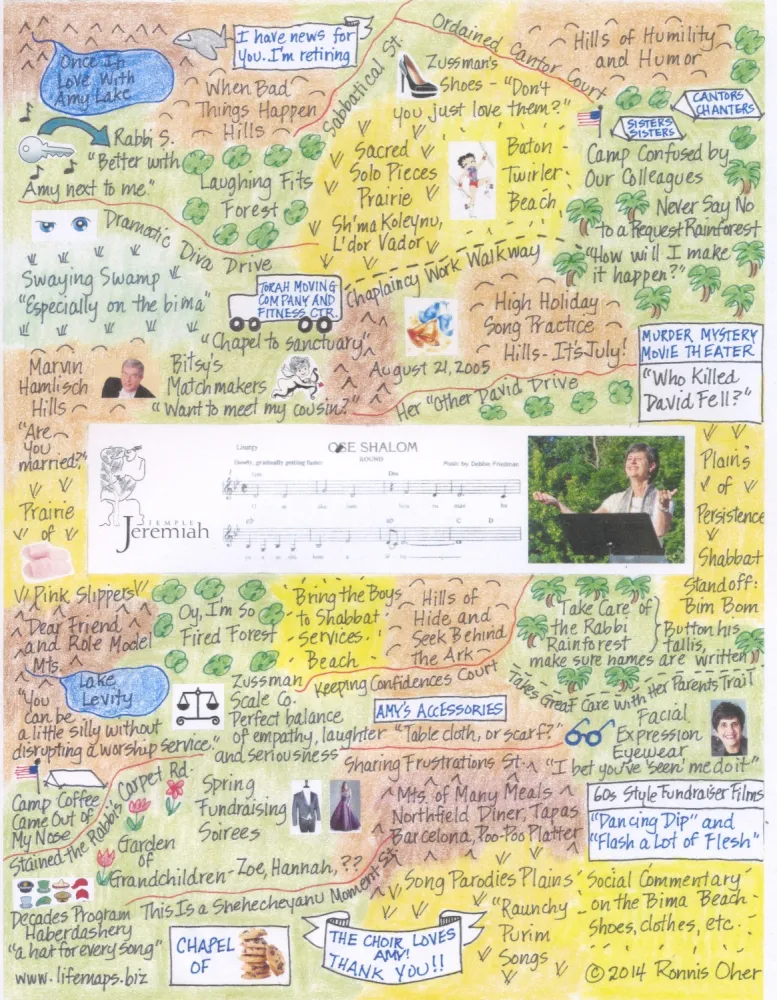 I have news for
you. I'm retiring
Once In
Love With
Amy Lake
When Bad
Things Happen
Hills
Sabbatical St.
Ordained Cantor Court
Hills of Humility
and Humor
Zussman's
Shoes - "Don't
you just love them?"
CANTORS
CHANTERS
SISTERS
SISTERS
Rabbi S.
"Better with
Amy next to me."
Laughing Fits
Forest
Sacred
Solo Pieces
Prairie
Sh'ma Koleynu,
L'dor Vador
Baton
Twirler
Beach
Camp Confused by
Our Colleagues
Never Say No
to a Request Rainforest
"How will I make
it happen?"
Dramatic Diva Drive
Swaying Swamp
"Especially on the bima"
TORAH MOVING
COMPANY AND
FITNESS CTR.
"Chapel to sanctuary"
Chaplaincy Work Walkway
August 21, 2005
High Holiday
Song Practice
Hills - It's July!
MURDER MYSTERY
MOVIE THEATER
"Who Killed
David Fell?"
Marvin
Hamlisch
Hills
"Are
you
married?"
Bitsy's
Matchmakers
"Want to meet my cousin?"
Her "Other David Drive
Liturgy
OSE SHALOM
ROUND
Slowly, gradually getting faster
Music by Debbie Friedman
TEMPLE
Jeremiah
Plains
of
Persistence
Shabbat
Standoff:
Bim Bom
Prairie
of
Pink Slippers
Dear Friend
and Role Model
Mts.
Oy, I'm So
Fired Forest
Bring the Boys
to Shabbat
Services
Beach
Hills of
Hide and
Seek Behind
the Ark
Take Care of
the Rabbi
Rainforest
Button his
tallis,
make sure names are written
Keeping Confidences Court
Takes Great Care with Her Parents Trail
Lake
Levity
"You
can be
a little silly without
disrupting a worship service."
Zussman
Scale Co.
Perfect balance
of empathy, laughter
and seriousness
AMY'S ACCESSORIES
"Table cloth, or scarf?"
Facial
Expression
Eyewear
"I bet you've 'seen' me do it"
Sharing Frustrations St.
Camp Coffee
Came Out of
My Nose
Stained the Rabbi's Carpet Rd.
Spring
Fundraising
Soirees
Mts. of Many Meals
Northfield Diner, Tapas
Barcelona, Poo-Poo Platter
60s Style Fundraiser Films
"Dancing Dip" and
"Flash a Lot of Flesh"
Garden
of
Grandchildren - Zoe, Hannah, ??
This Is a Shehecheyanu Moment St.
Decades Program
Haberdashery
"a hat for every song"
www.lifemaps.biz
CHAPEL
OF
THE CHOIR LOVES
AMY!
THANK YOU!!
Song Parodies Plains
"Raunchy
Purim
Songs
Social Commentary
on the Bima Beach
Shoes, clothes, etc.
© 2014 Ronnis Oher